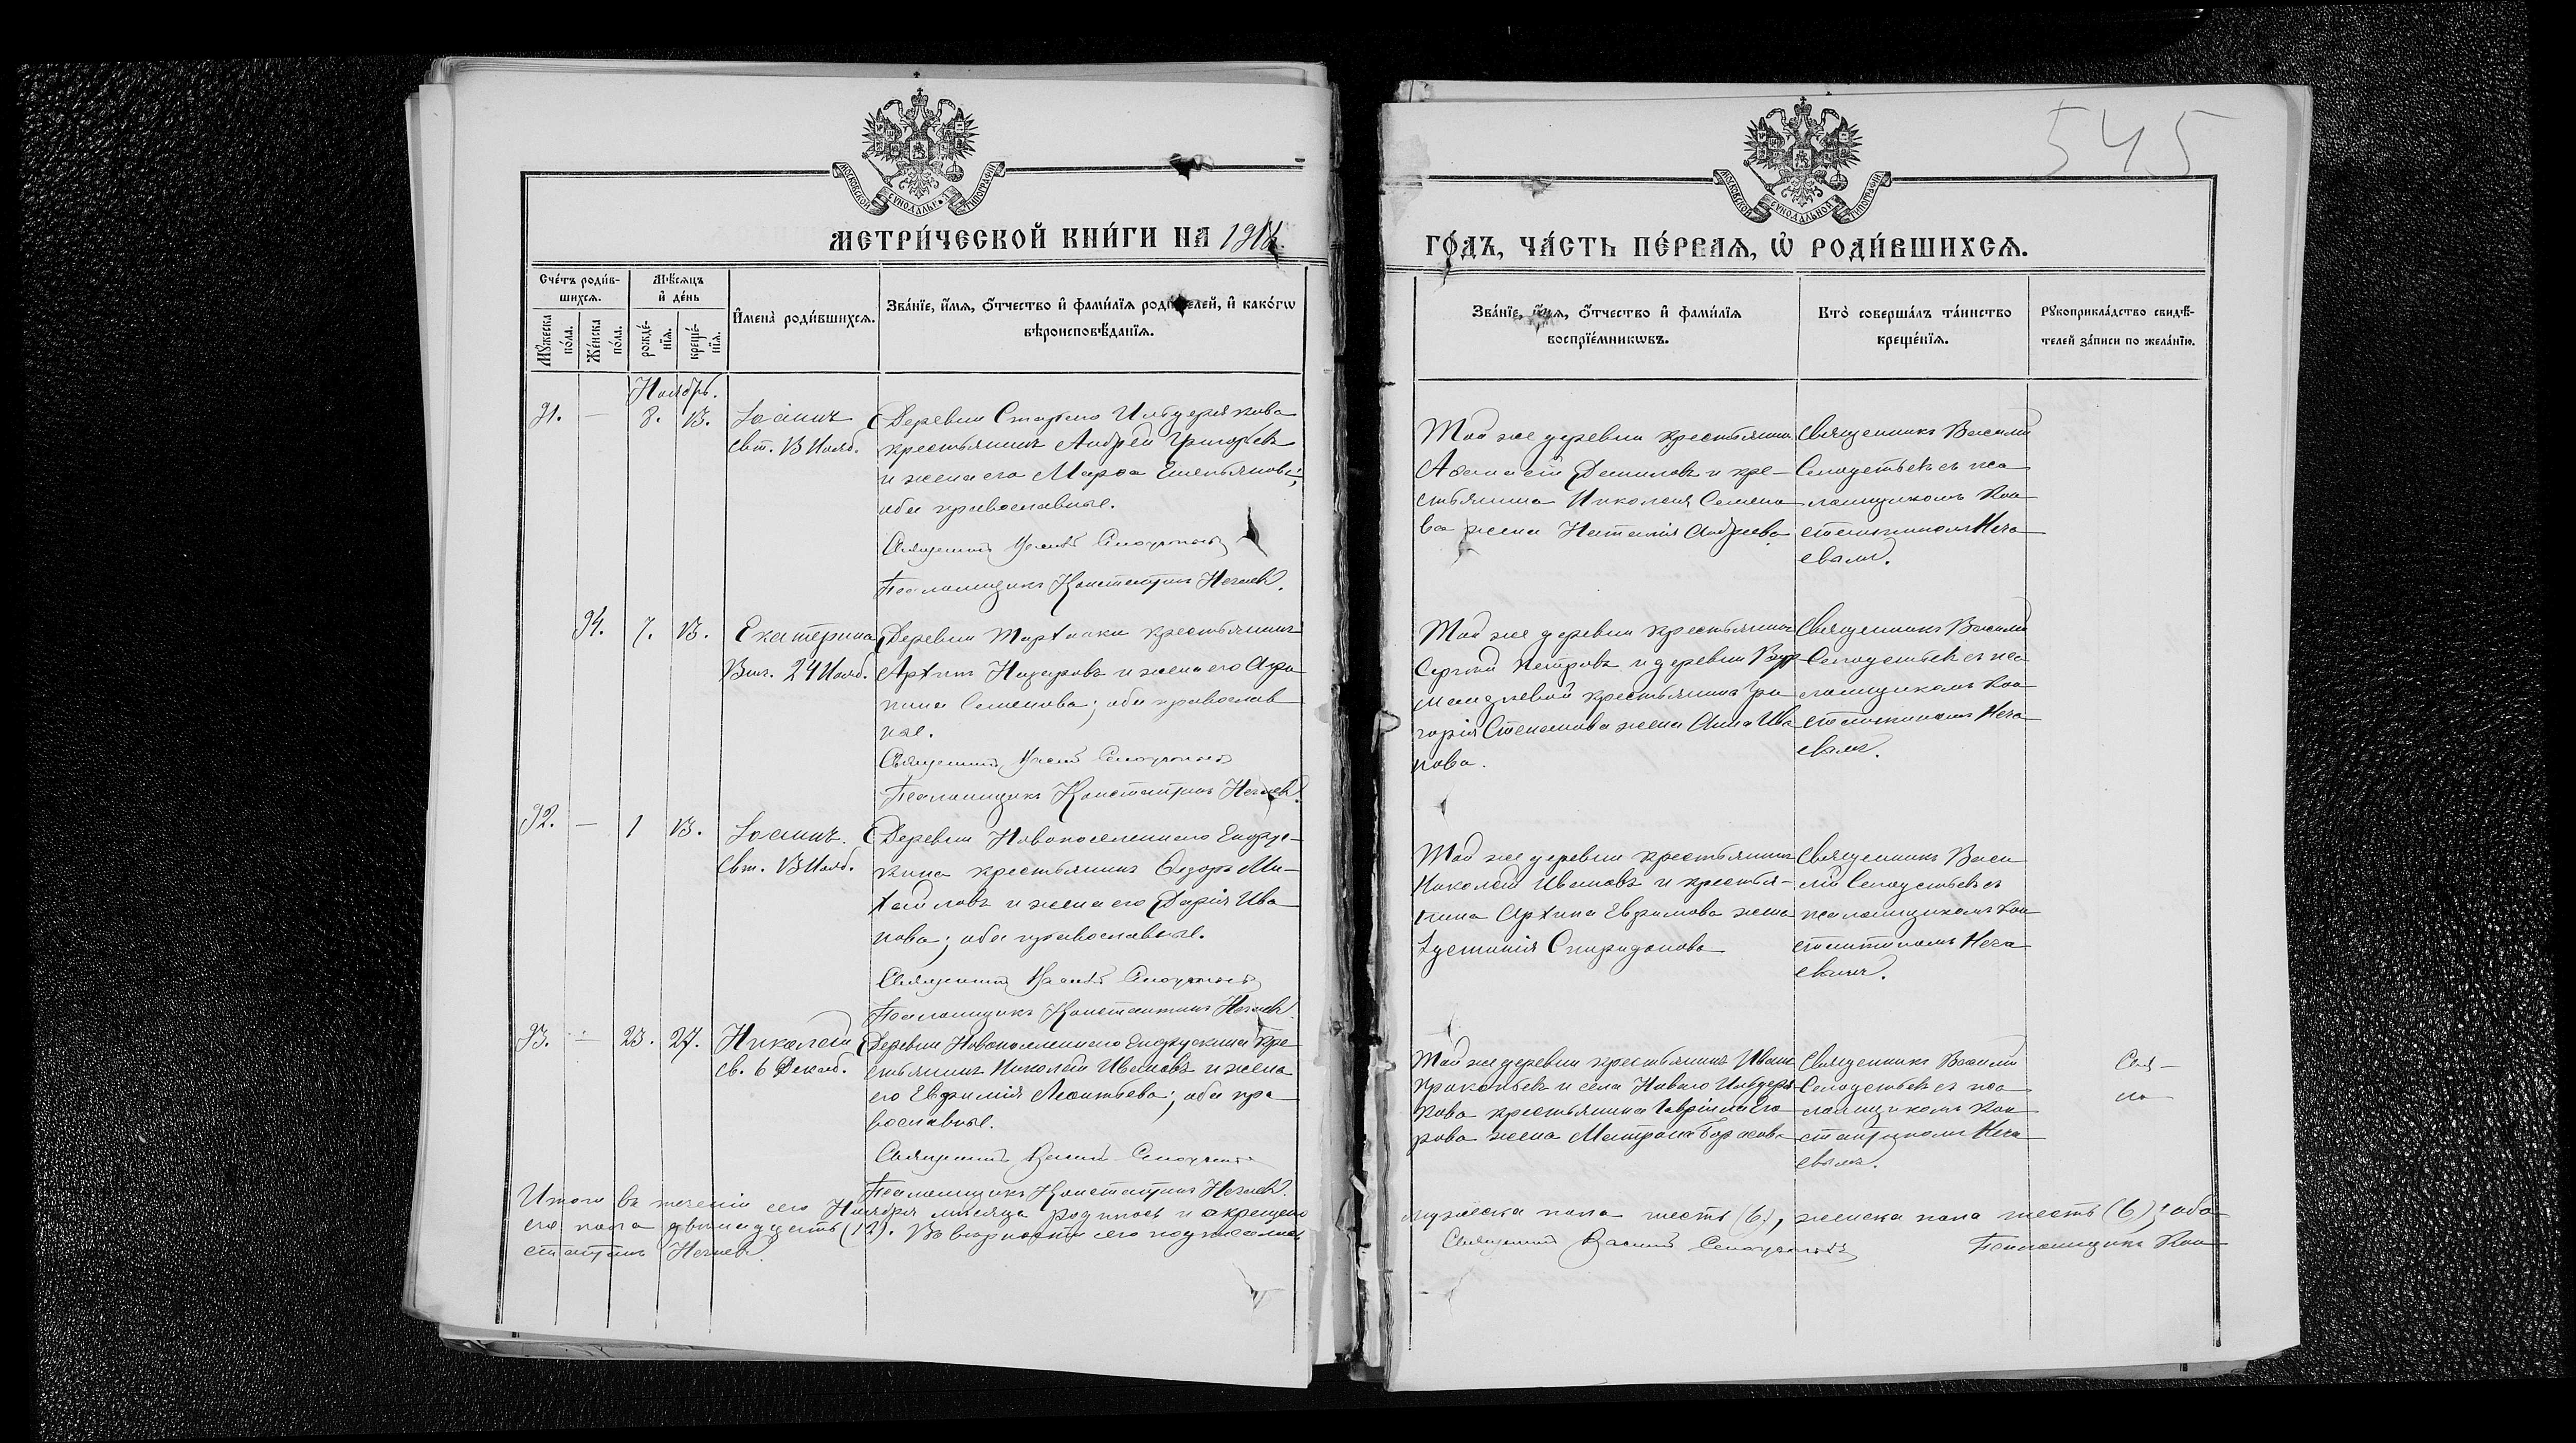 545
МОСКОВСКОЙ СѴНОДАЛЬНОЙ ТИПОГРАФІИ
МЕТРИ́ЧЕСКОЙ КНИ́ГИ НА
ГО́ДЪ, ЧА́СТЬ ПЕ́РВАЯ, Ѽ РОДИ́ВШИХСЯ.
Сче́тъ роди́в-
шихся.
Мѣ́сяцъ
и҆ де́нь
Му́жеска по́ла.
Же́нска по́ла.
рожде́-
нїя.
креще́-
нїя.
И҆мена̀ роди́вшихся.
Зва́нїе, и҆́мя, ѻ҆́тчество и҆ фами́лїя родителей, и҆ како́гѡ
вѣроисповѣ́данїя.
Зва́нїе, и҆́мя, ѻ҆́тчество и҆ фами́лїя
воспрїе́мникѡвъ.
Кто̀ соверша́лъ та́инство
креще́нїя.
Рукоприкла́дство свидѣ́-
телей за́писи по жела́нїю.
Ноябрь.
91. — 8. 13. Іоаннъ
свт. 13 Нояб.
Деревни Стараго Ильдерякова
крестьянинъ Андрей Григорьевъ
и жена его Марѳа Емельянова;
оба православные.
Священникъ
Псаломщикъ Константинъ Нечаевъ.
Той же деревни крестьянинъ
Аѳанасій Даниловъ и кре-
стьянина Николая Семено
ва жена Наталія Андреева
Священникъ Василій
съ пса
ломщикомъ Кон
стантиномъ Неча
евымъ.
94. 7. 13. Екатерина
Вмч. 24 Нояб.
Деревни крестьянинъ
Архипъ и жена его Агра
пина Семенова; оба православ
ные.
Священникъ
Псаломщикъ Константинъ Нечаевъ.
Той же деревни крестьянинъ
Сергѣй Петровъ и деревни
крестьянина Гри
горія Степанова жена Анна Ива
нова.
Священникъ Василій
съ пса
ломщикомъ Кон
стантиномъ Неча
евымъ.
92. — 1 13. Іоаннъ.
свт. 13 Нояб.
Деревни Новопоселеннаго
крестьянинъ Ѳедоръ Ми-
хайловъ и жена его Дарія Ива
нова; оба православные.
Священникъ
Псаломщикъ Константинъ Нечаевъ.
Той же деревни крестьянинъ
Николай Ивановъ и крестья-
нина Архипа Евфимова жена
Іустинія Спиридонова
Священникъ Васи
лій съ
псаломщикомъ Кон
стантиномъ Неча
евымъ.
93. — 23. 27. Николай
св. 6 Декаб.
Деревни Новопоселеннаго кре
стьянинъ Николай Ивановъ и жена
его Евфимія Леонтьева; оба пра
вославные.
Священникъ
Псаломщикъ Константинъ Нечаевъ.
Той же деревни крестьянинъ Иванъ
Прокопьевъ и села Новаго Ильдеря
кова крестьянина Гавріила Его
рова жена Матрона
Священникъ Василій
съ пса
ломщикомъ Кон
стантиномъ Неча
евымъ.
Итого въ теченіи сего Ноября мѣсяца родилось и окрещено мужеска пола шесть (6), женска пола шесть (6); обо
его пола двѣнадцать (12). Въ вѣрности сего подписались Священникъ Псаломщикъ Кон
стантинъ Нечаевъ.